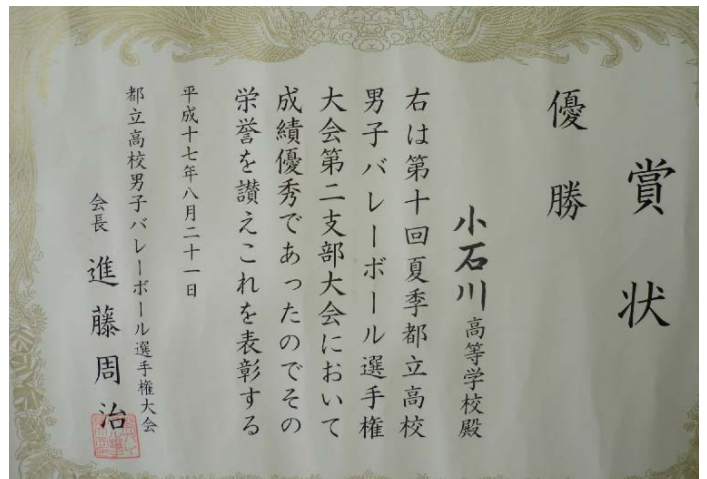 賞状
優勝
小石川高等学校殿
右は第十回夏季都立高校
男子バレーボール選手権
大会第二支部大会において
成績優秀であったのでその
栄誉を讃えこれを表彰する
平成十七年八月二十一日
都立高校男子バレーボール選手権大会
会長 進藤周治